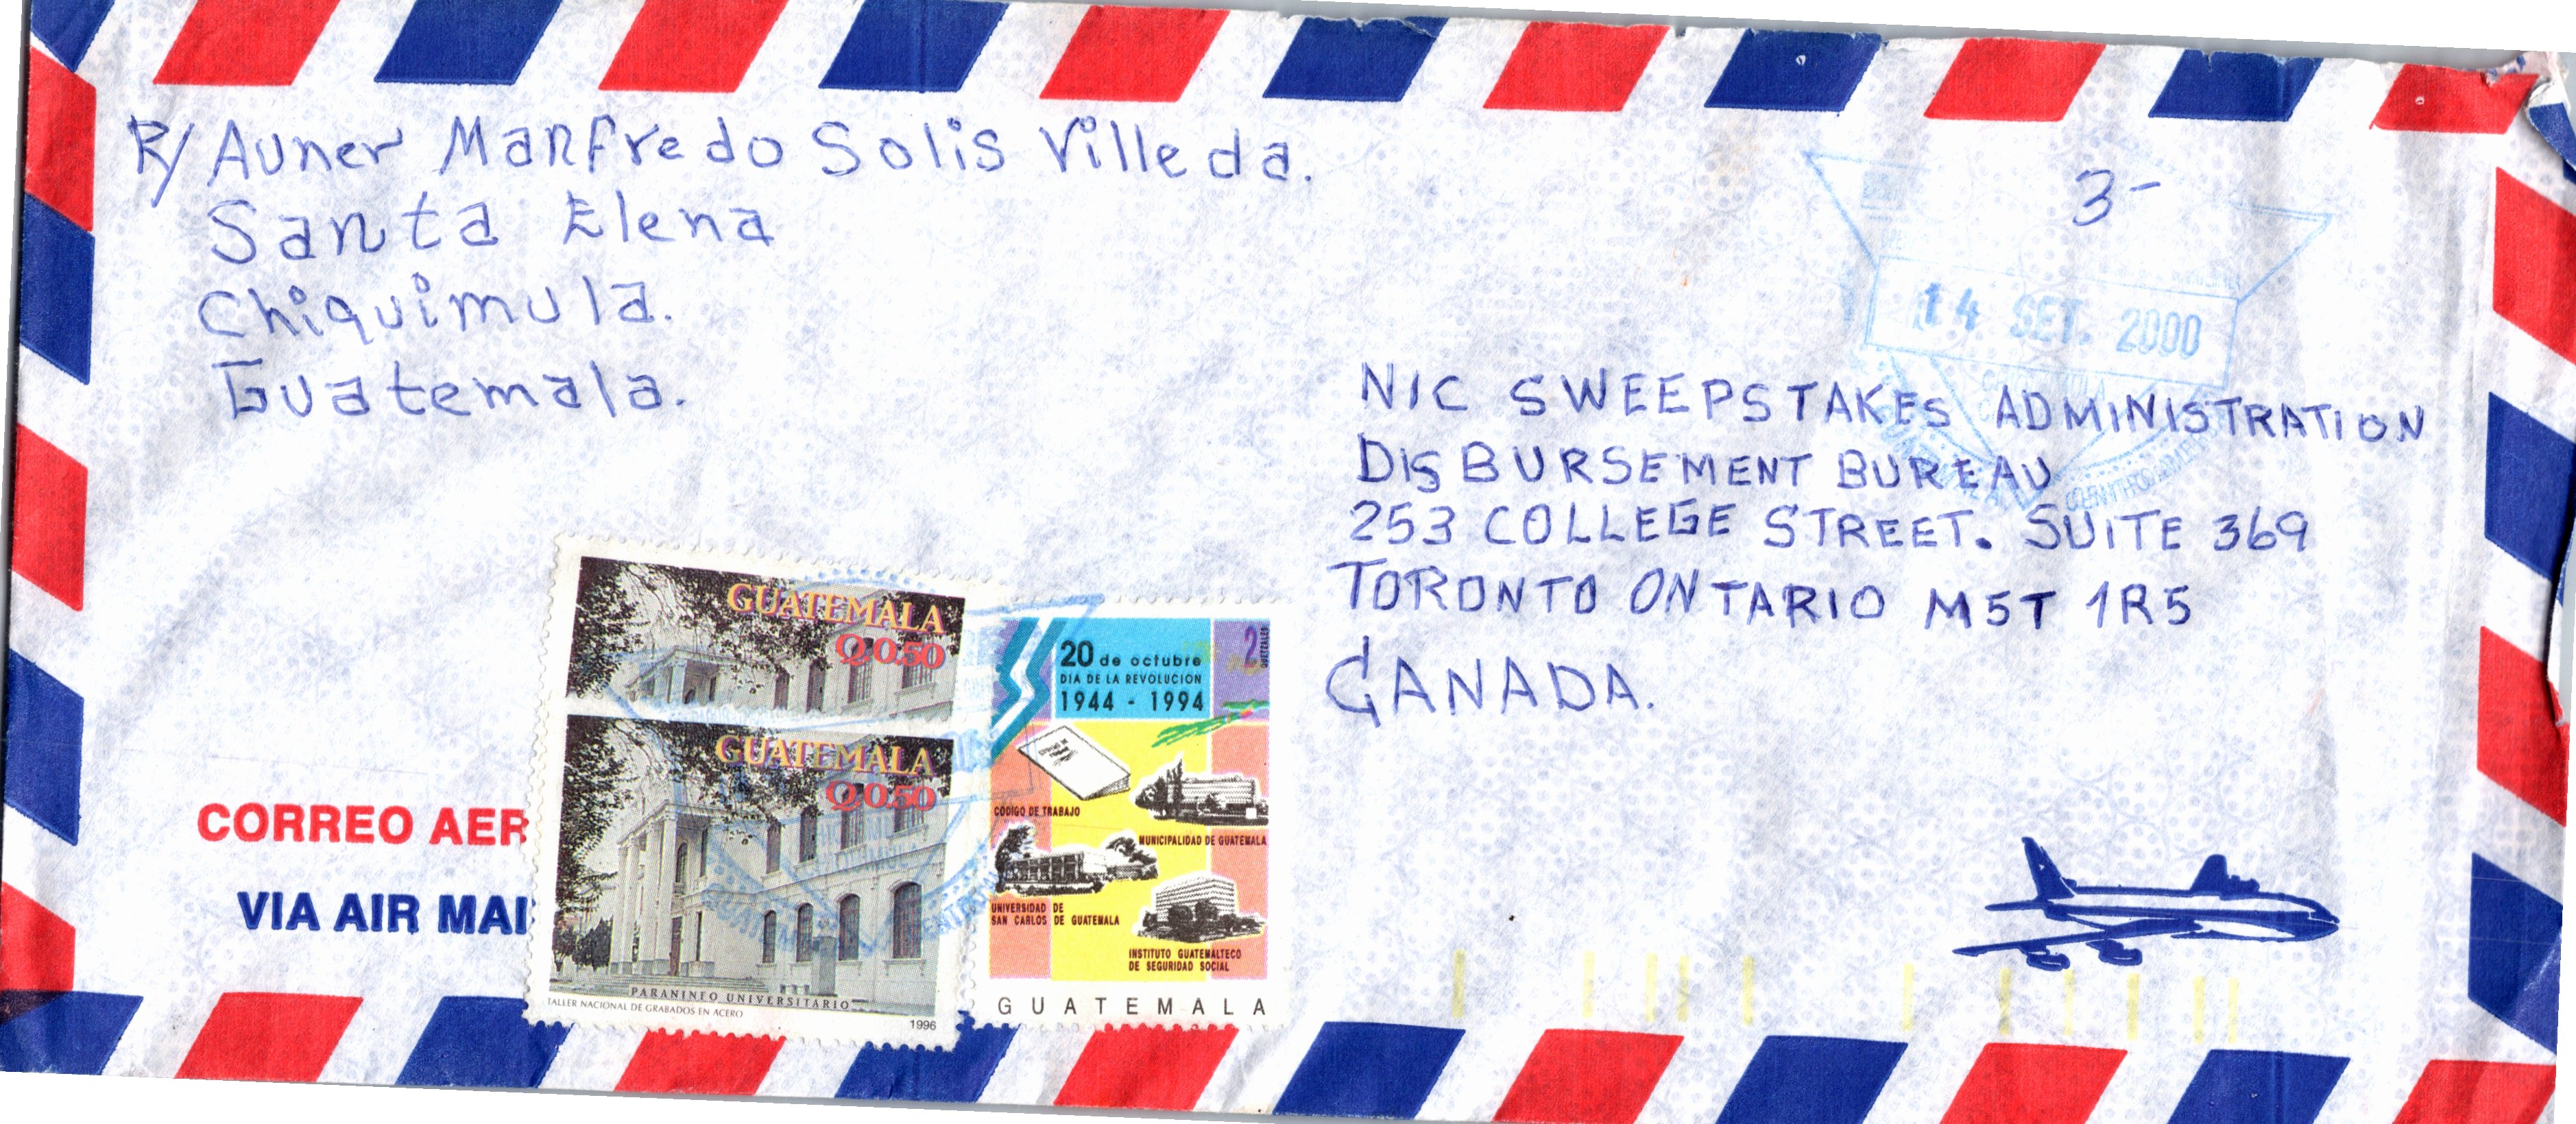 R/ Auner Manfredo Solis Villeda.
Santa Elena
Chiquimula.
Guatemala.
3-
14 SET. 2000
NIC SWEEPSTAKES ADMINISTRATION
DISBURSEMENT BUREAU
253 COLLEGE STREET. SUITE 369
TORONTO ONTARIO M5T 1R5
CANADA.
CORREO AER
VIA AIR MAI
GUATEMALA
Q0.50
GUATEMALA
Q0.50
PARANINFO UNIVERSITARIO
TALLER NACIONAL DE GRABADOS EN ACERO
1996
20 de octubre
DIA DE LA REVOLUCION
1944 - 1994
2
QUETZALES
CODIGO DE TRABAJO
MUNICIPALIDAD DE GUATEMALA
UNIVERSIDAD DE
SAN CARLOS DE GUATEMALA
INSTITUTO GUATEMALTECO
DE SEGURIDAD SOCIAL
GUATEMALA